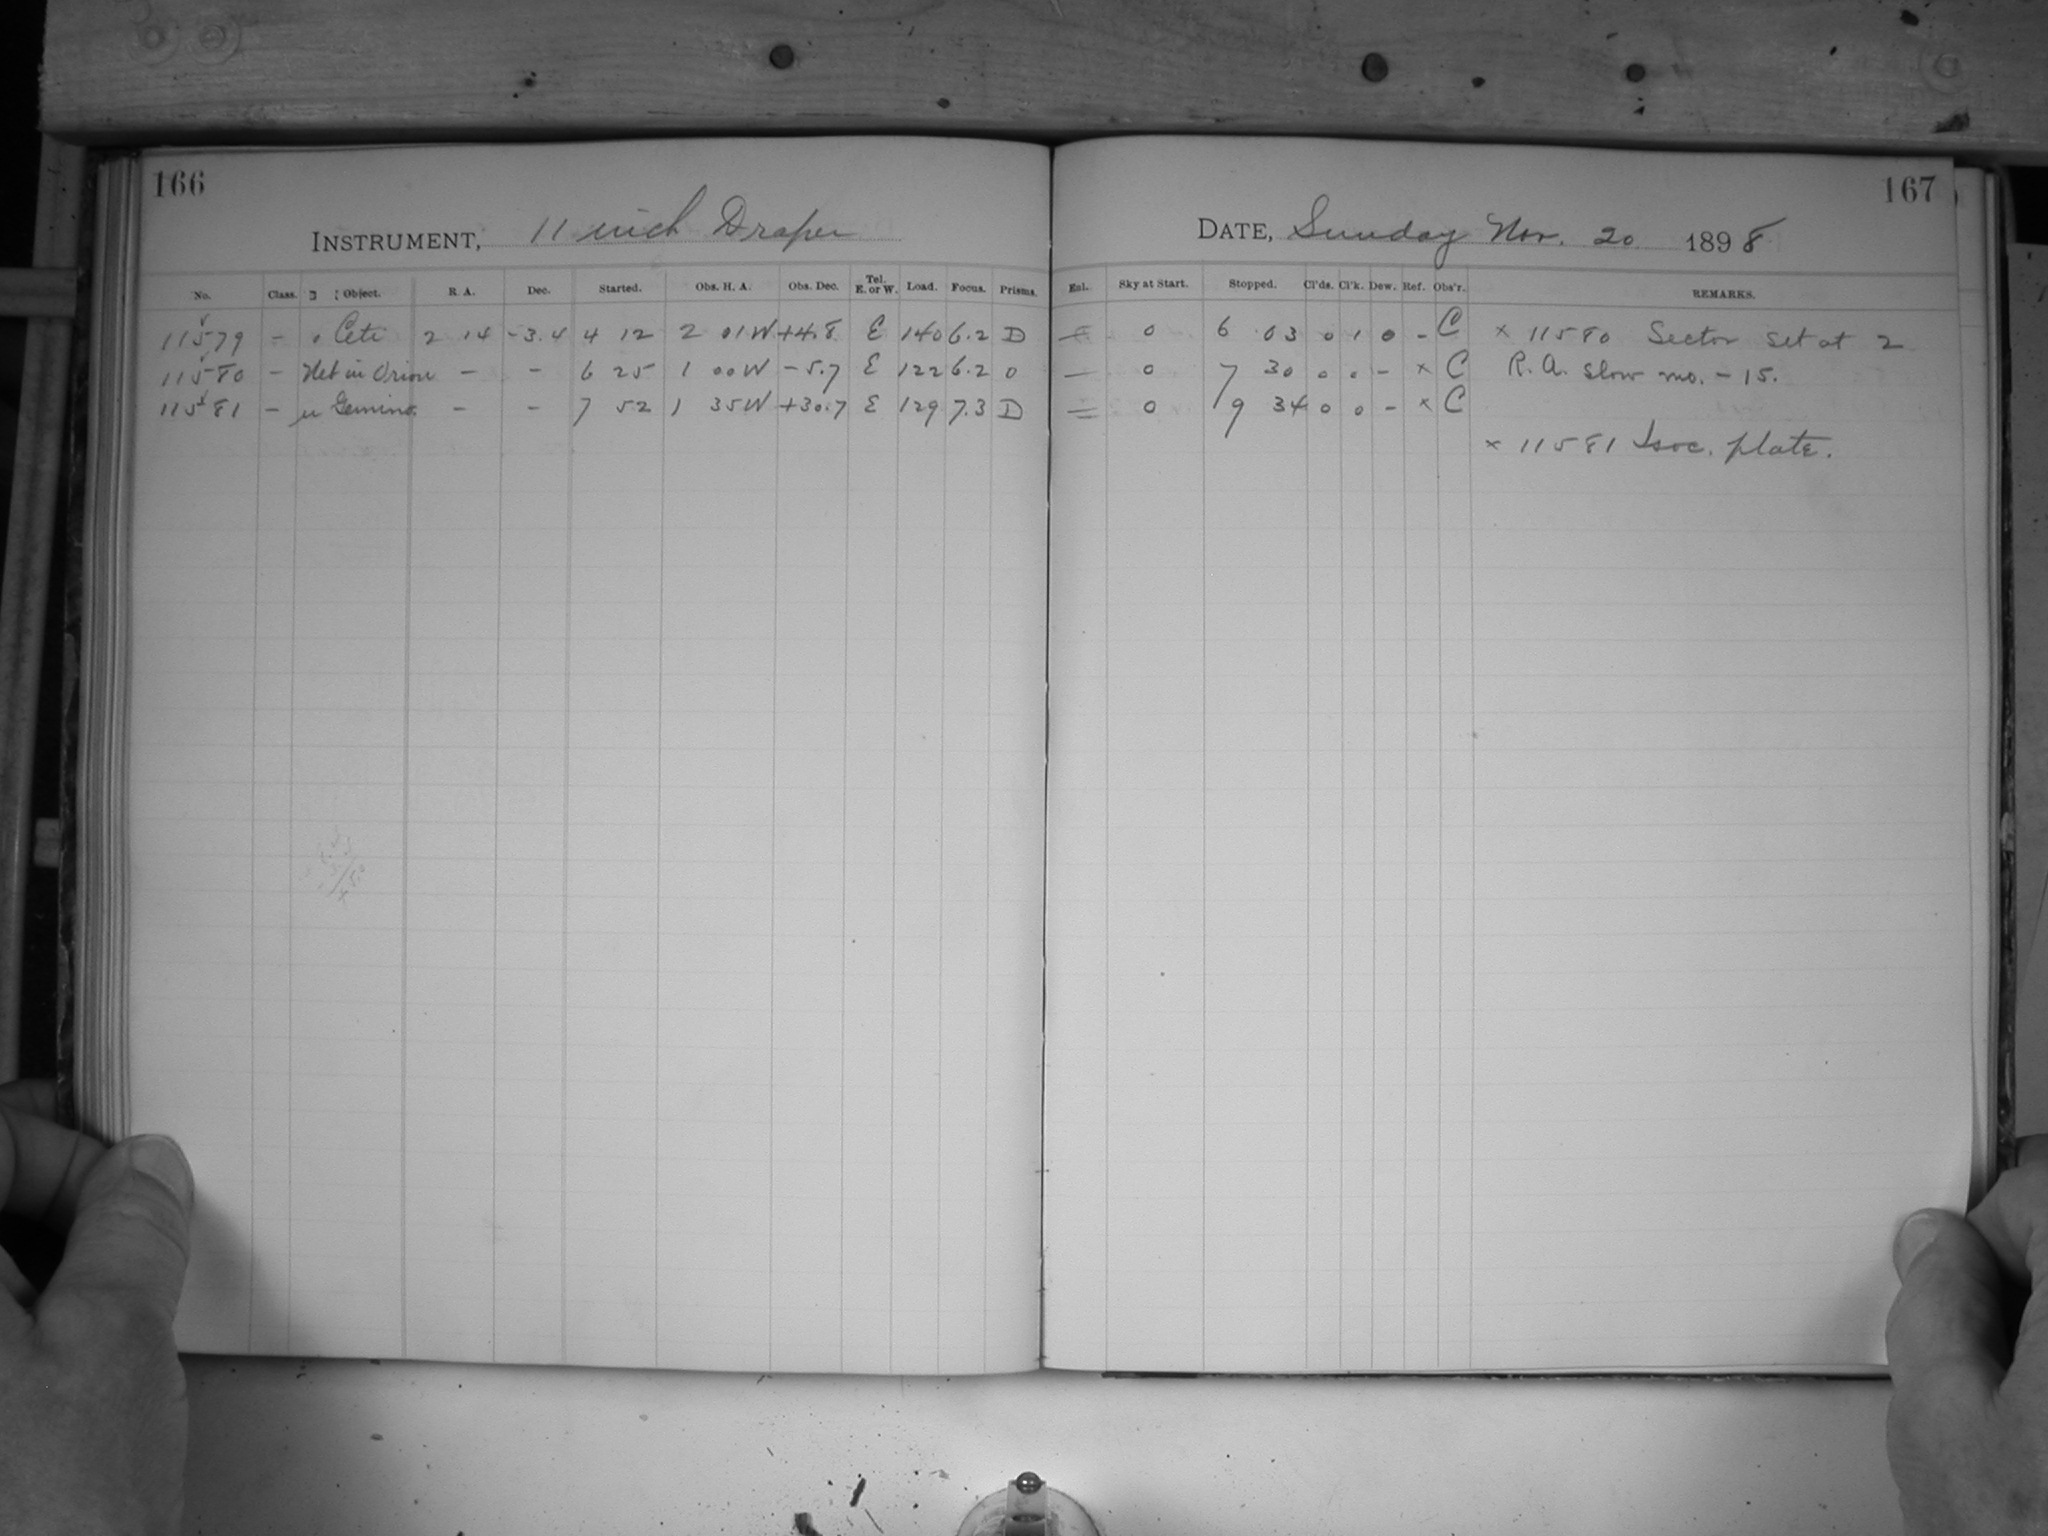 166
INSTRUMENT, 11 inch Draper
No. Class. Object. R. A. Dec. Started. Obs. H. A. Obs. Dec. Tel. E. or W. Load. Focus. Prisms.
11579 - o Ceti 2 14 -3.4 4 12 2 01 W +4.8 E 140 6.2 D
11580 - Neb in Orion - - 6 25 1 00 W -5.7 E 122 6.2 0
11581 - μ Gemino. - - 7 52 1 35 W +30.7 E 129 7.3 D
167
DATE, Sunday Nov. 20 1898
Enl. Sky at Start. Stopped. Cl'ds. Cl'k. Dew. Ref. Obs'r. REMARKS.
- 0 6 03 0 1 0 - C × 11580 Sector set at 2
- 0 7 30 0 0 - × C R. A. slow mo. - 15.
- 0 9 34 0 0 - × C
× 11581 Isoc. plate.